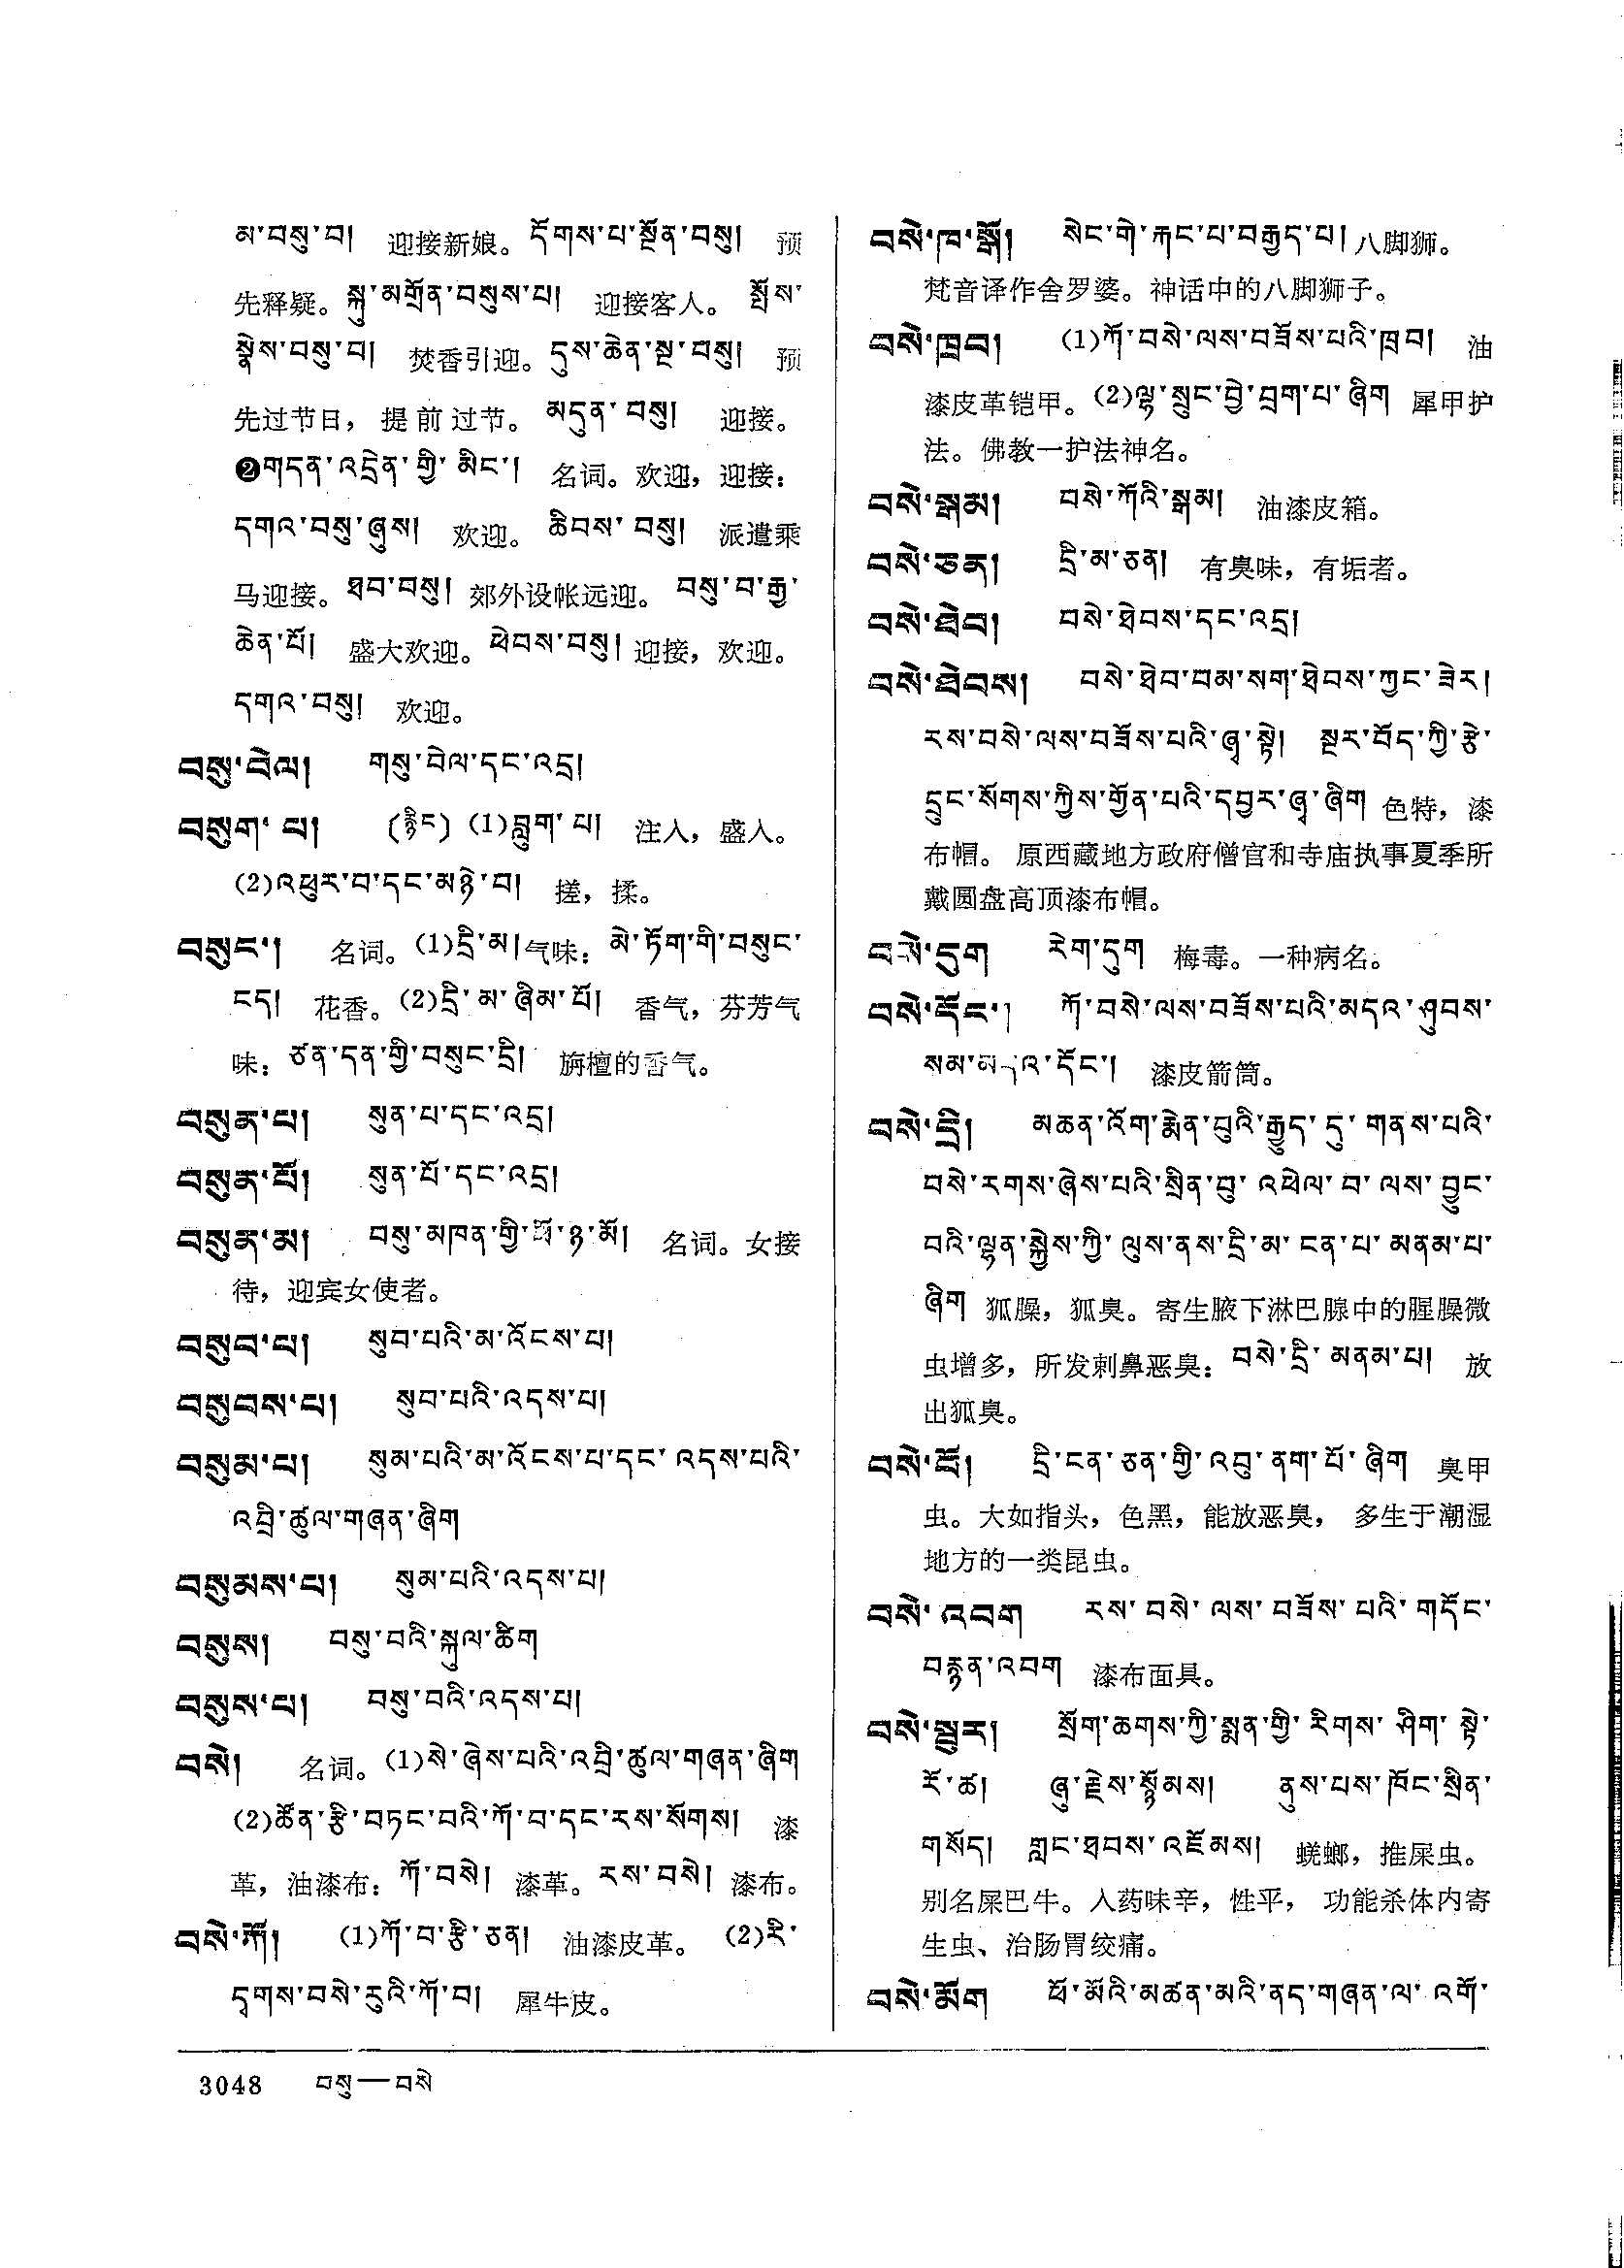 མ་བསུ་བ།  迎接新娘。དོགས་པ་སྔོན་བསུ།  预
先释疑。སྐུ་མགྲོན་བསུས་པ།  迎接客人。 སྤོས་
སྣེས་བསུ་བ།  焚香引迎。དུས་ཆེན་སྔ་བསུ།  预
先过节日，提前过节。 མདུན་བསུ།  迎接。
❷གདན་འདྲེན་གྱི་མིང་།  名词。欢迎，迎接：
དགའ་བསུ་ཞུས།  欢迎。 ཆིབས་བསུ།  派遣乘
马迎接。ཐབ་བསུ། 郊外设帐远迎。 བསུ་བ་རྒྱ་
ཆེན་པོ།  盛大欢迎。ཕེབས་བསུ། 迎接，欢迎。
དགའ་བསུ།  欢迎。
བསུ་བེལ།  གསུ་བེལ་དང་འདྲ།
བསུག་པ།  (རྙིང) (1)བླུག་པ།  注入，盛入。
(2)འཕུར་བ་དང་མཉེ་བ།  搓，揉。
བསུང་།  名词。(1)དྲི་མ།气味：མེ་ཏོག་གི་བསུང་
ངད།  花香。(2)དྲི་མ་ཞིམ་པོ།  香气，芬芳气
味：ཙན་དན་གྱི་བསུང་དྲི།  旃檀的香气。
བསུན་པ།  སུན་པ་དང་འདྲ།
བསུན་པོ།  སུན་པོ་དང་འདྲ།
བསུན་མ།  བསུ་མཁན་གྱི་ཕོ་ཉ་མོ།  名词。女接
待，迎宾女使者。
བསུབ་པ།  སུབ་པའི་མ་འོངས་པ།
བསུབས་པ།  སུབ་པའི་འདས་པ།
བསུམ་པ།  སུམ་པའི་མ་འོངས་པ་དང་འདས་པའི་
འབྲི་ཚུལ་གཞན་ཞིག
བསུམས་པ།  སུམ་པའི་འདས་པ།
བསུས།  བསུ་བའི་སྐུལ་ཚིག
བསུས་པ།  བསུ་བའི་འདས་པ།
བསེ།  名词。(1)སེ་ཞེས་པའི་འབྲི་ཚུལ་གཞན་ཞིག
(2)ཚོན་རྩི་བཏང་བའི་ཀོ་བ་དང་རས་སོགས།  漆
革，油漆布：ཀོ་བསེ།  漆革。རས་བསེ། 漆布。
བསེ་ཀོ།  (1)ཀོ་བ་རྩི་ཅན།  油漆皮革。 (2)རི་
དྭགས་བསེ་རུའི་ཀོ་བ།  犀牛皮。
བསེ་ཁ་སྒོ།  སེང་གེ་རྐང་པ་བརྒྱད་པ། 八脚狮。
梵音译作舍罗婆。神话中的八脚狮子。
བསེ་ཁྲབ།  (1)ཀོ་བསེ་ལས་བཟོས་པའི་ཁྲབ།  油
漆皮革铠甲。(2)ལྷ་སྲུང་བྱེ་བྲག་པ་ཞིག  犀甲护
法。佛教一护法神名。
བསེ་སྒམ།  བསེ་ཀོའི་སྒམ།  油漆皮箱。
བསེ་ཅན།  དྲི་མ་ཅན།  有臭味，有垢者。
བསེ་ཐེབ།  བསེ་ཐེབས་དང་འདྲ།
བསེ་ཐེབས།  བསེ་ཐེབ་བམ་སག་ཐེབས་ཀྱང་ཟེར།
རས་བསེ་ལས་བཟོས་པའི་ཞྭ་སྟེ།  སྔར་བོད་ཀྱི་རྩེ་
དྲུང་སོགས་ཀྱིས་གྱོན་པའི་དབྱར་ཞྭ་ཞིག 色特，漆
布帽。 原西藏地方政府僧官和寺庙执事夏季所
戴圆盘高顶漆布帽。
བསེ་དུག  རེག་དུག  梅毒。一种病名。
བསེ་དོང་།  ཀོ་བསེ་ལས་བཟོས་པའི་མདའ་ཤུབས་
སམ་མདའ་དོང་།  漆皮箭筒。
བསེ་དྲི།  མཆན་འོག་རྨེན་བུའི་རྒྱུད་དུ་གནས་པའི་
བསེ་རགས་ཞེས་པའི་སྲིན་བུ་འཕེལ་བ་ལས་བྱུང་
བའི་ལྷན་སྐྱེས་ཀྱི་ལུས་ནས་དྲི་མ་ངན་པ་མནམ་པ་
ཞིག 狐臊，狐臭。寄生腋下淋巴腺中的腥臊微
虫增多，所发刺鼻恶臭：བསེ་དྲི་མནམ་པ།  放
出狐臭。
བསེ་པོ།  དྲི་ངན་ཅན་གྱི་འབུ་ནག་པོ་ཞིག  臭甲
虫。大如指头，色黑，能放恶臭， 多生于潮湿
地方的一类昆虫。
བསེ་འབག  རས་བསེ་ལས་བཟོས་པའི་གདོང་
བརྙན་འབག  漆布面具。
བསེ་སྦུར།  སྲོག་ཆགས་ཀྱི་སྨན་གྱི་རིགས་ཤིག་སྟེ་
རོ་ཚ།  ཞུ་རྗེས་སྙོམས།  ནུས་པས་ཁོང་སྲིན་
གསོད།  གླང་ཐབས་འཇོམས།  蜣螂，推屎虫。
别名屎巴牛。入药味辛，性平， 功能杀体内寄
生虫、治肠胃绞痛。
བསེ་མོག  ཕོ་མོའི་མཚན་མའི་ནད་གཞན་ལ་འགོ་
3048  བསུ—བསེ